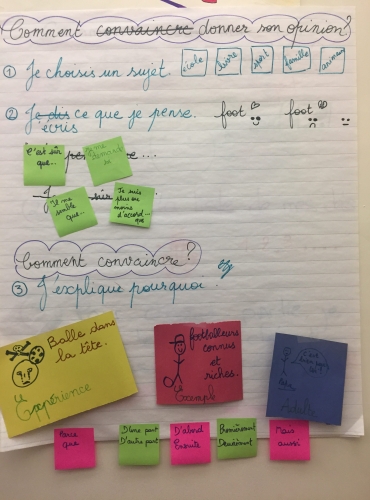 Comment convaincre donner son opinion?
① Je choisis un sujet. école livre sport famille animaux
② Je dis ce que je pense. foot foot
écris
C'est sûr que...
Je me demande si
Il me semble que...
sûr
Je suis plus ou moins d'accord... que
Comment convaincre?
③ J'explique pourquoi.
Balle dans la tête.
Expérience
footballeurs connus et riches.
Exempl
Parce que
D'une part
D'autre part
D'abord
Ensuite
Premièrement
Deuxièment
Mais aussi